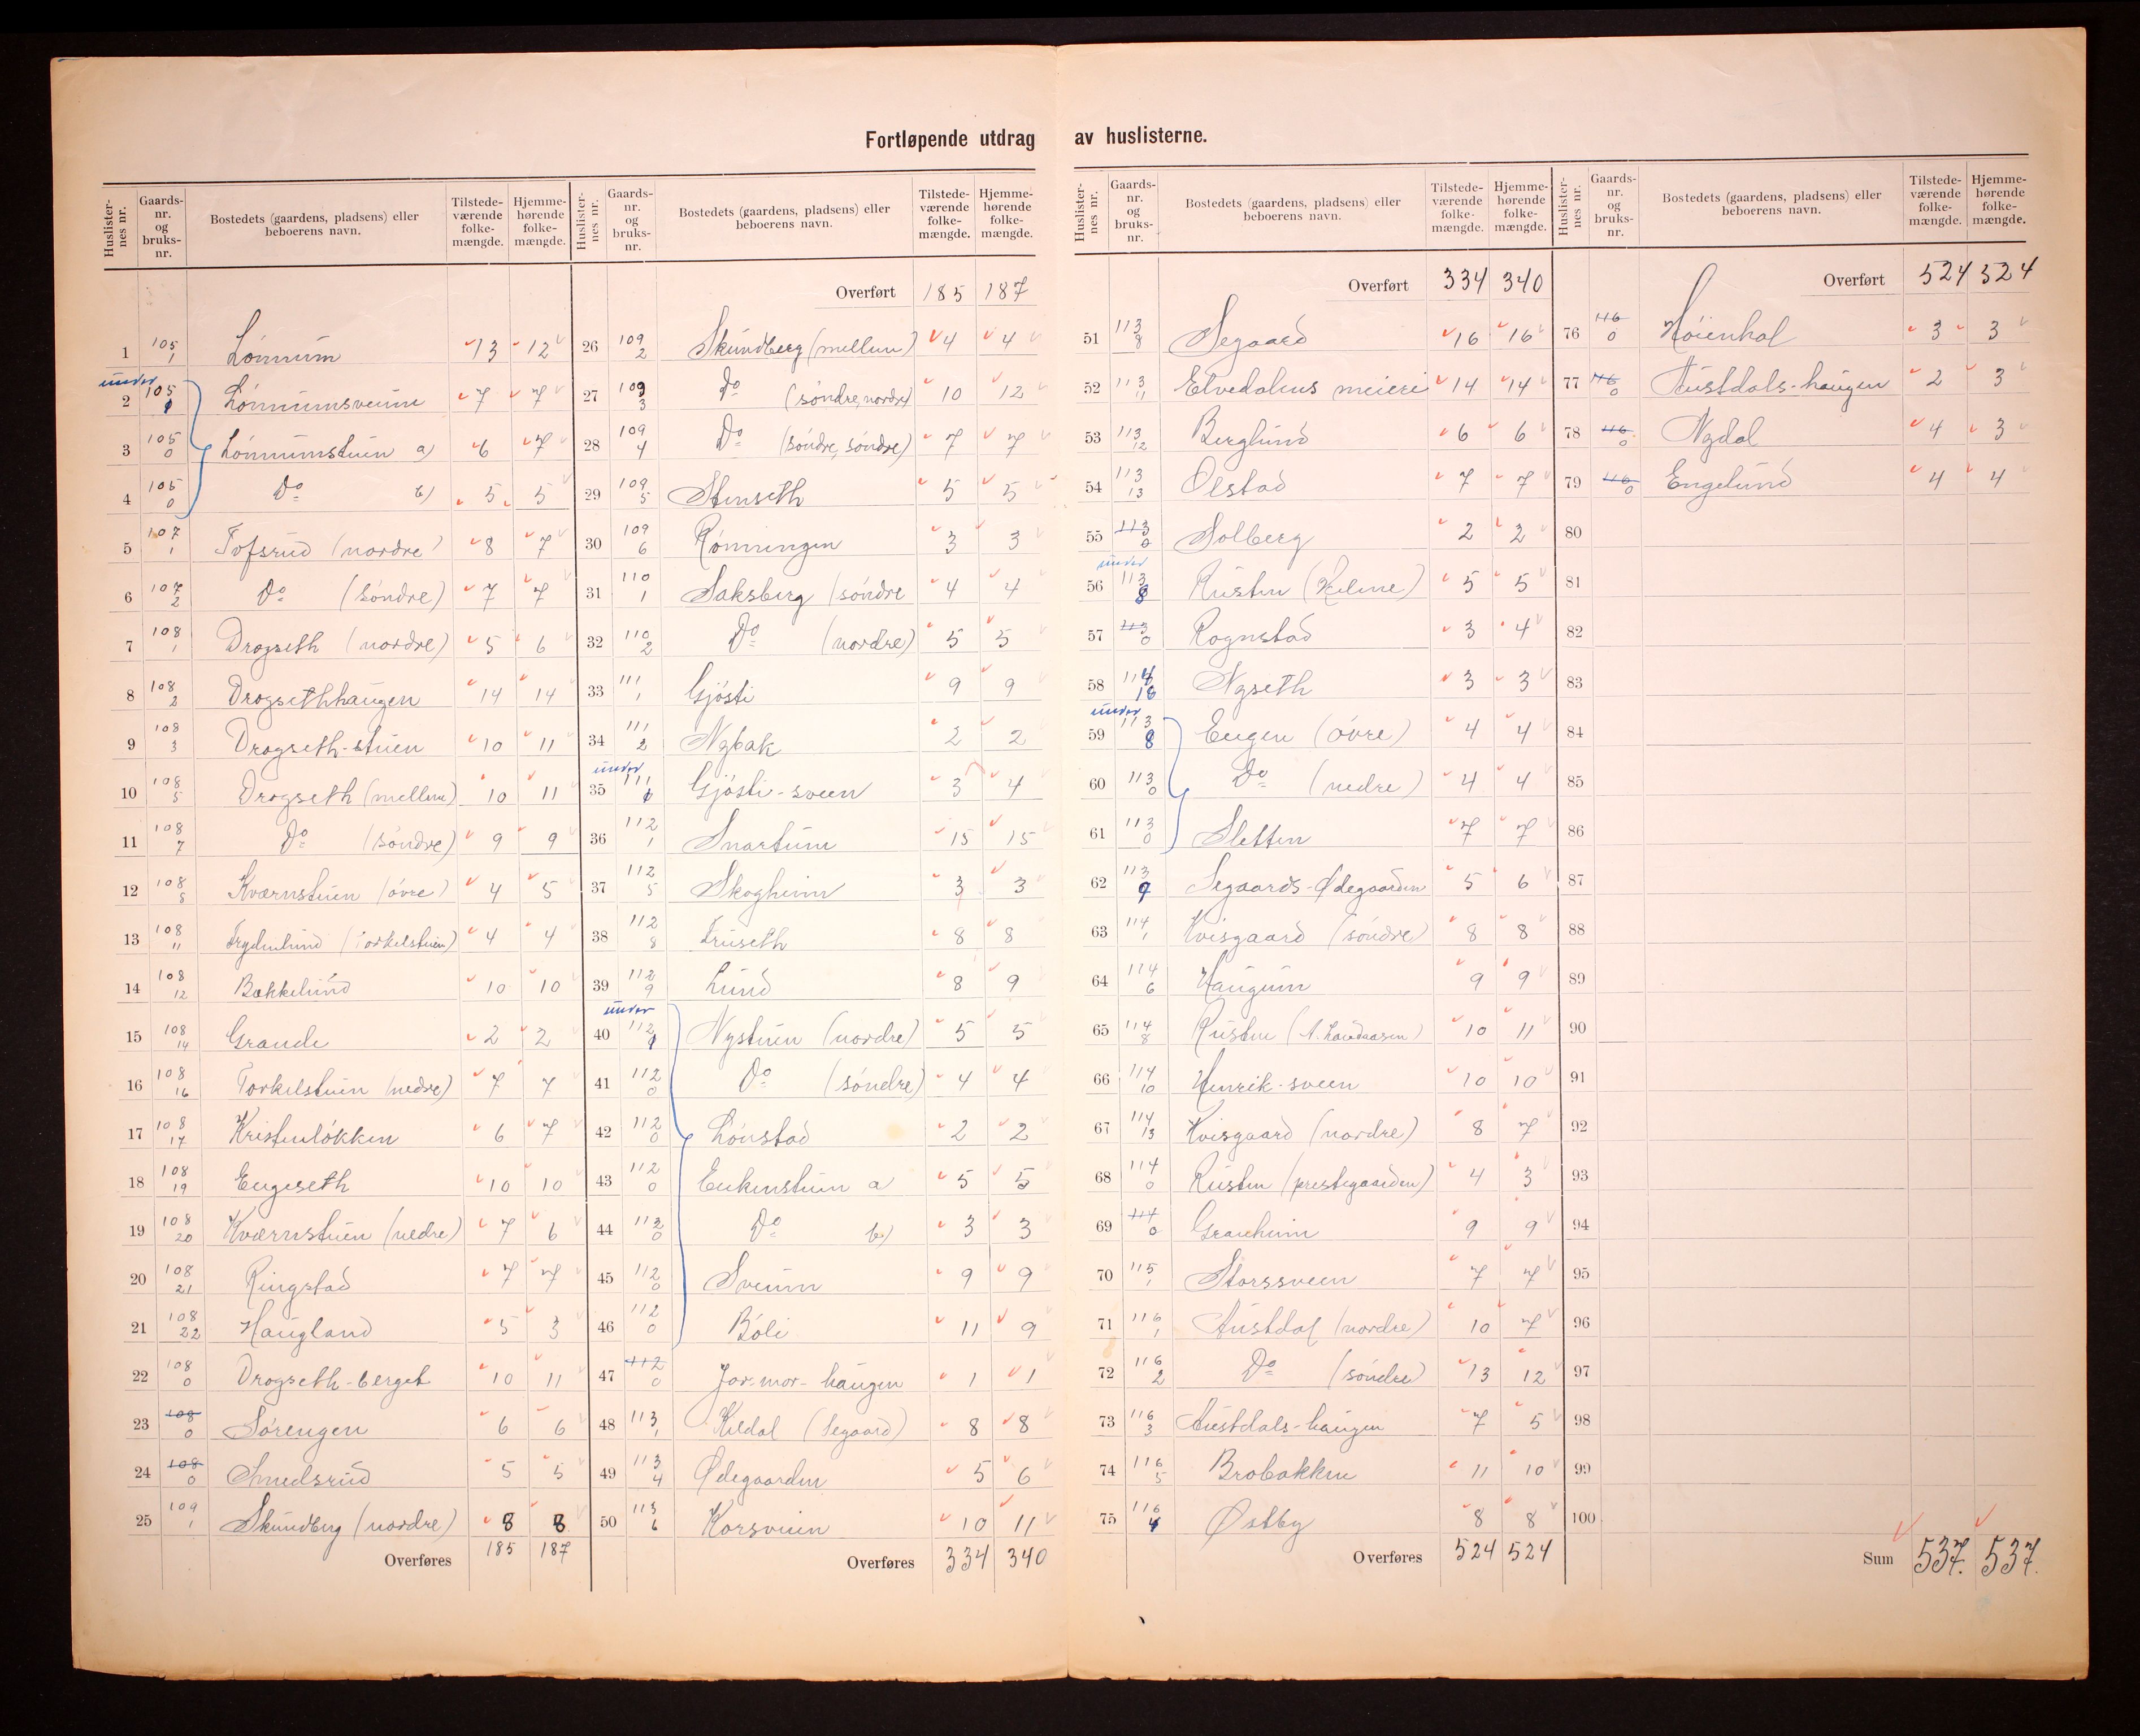 Fortløpende utdrag av huslisterne.
Huslister-nes nr. Gaards-nr. og bruks-nr. Bostedets (gaardens, pladsens) eller beboerens navn. Tilstede-værende folke-mængde. Hjemme-hørende folke-mængde.
1 105 1 Lønnum 13 12
under
2 105 1 Lønnumsveunn 7 7
3 105 0 Lønnumstuen a) 6 7
4 105 0 Do b) 5 5
5 107 1 Tofsrud (nordre) 8 7
6 107 2 Do (søndre) 7 7
7 108 1 Drogseth (nordre) 5 6
8 108 2 Drogsethhaugen 14 14
9 108 3 Drogseth-stuen 10 11
10 108 5 Drogseth (mellem) 10 11
11 108 7 Do (søndre) 9 9
12 108 8 Kværnstuen (øvre) 4 5
13 108 11 Frydenlund (Torkelstuen) 4 4
14 108 12 Bakkelund 10 10
15 108 14 Grande 2 2
16 108 16 Torkelstuen (nedre) 7 7
17 108 17 Kristenløkken 6 7
18 108 19 Engeseth 10 10
19 108 20 Kværnstuen (nedre) 7 6
20 108 21 Ringstad 7 7
21 108 22 Haugland 5 3
22 108 0 Drogseth-berget 10 11
23 108 0 Sørengen 6 6
24 108 0 Smedsrud 5 5
25 109 1 Skundberg (nordre) 8 8
Overføres 185 187
Huslister-nes nr. Gaards-nr. og bruks-nr. Bostedets (gaardens, pladsens) eller beboerens navn. Tilstede-værende folke-mængde. Hjemme-hørende folke-mængde.
Overført 185 187
26 109 2 Skundberg (mellem) 4 4
27 109 3 Do (søndre, nordre) 10 12
28 109 4 Do (søndre, søndre) 7 7
29 109 5 Stenseth 5 5
30 109 6 Rønningen 3 3
31 110 1 Saksberg (søndre 4 4
32 110 2 Do (nordre) 5 5
33 111 1 Gjøsti 9 9
34 111 2 Nybak 2 2
under
35 111 1 Gjøsti-sveen 3 4
36 112 1 Snartum 15 15
37 112 5 Skogheim 3 3
38 112 8 Truseth 8 8
39 112 9 Lund 8 9
under
40 112 1 Nystuen (nordre) 5 5
41 112 0 Do (søndre) 4 4
42 112 0 Lønstad 2 2
43 112 0 Enkenstuen a 5 5
44 112 0 Do b) 3 3
45 112 0 Sveum 9 9
46 112 0 Bøli 11 9
47 112 0 Jor-mor-haugen 1 1
48 113 1 Kildal (Segaard) 8 8
49 113 4 Ødegaarden 5 6
50 113 6 Korsveien 10 11
Overføres 334 340
Huslister-nes nr. Gaards-nr. og bruks-nr. Bostedets (gaardens, pladsens) eller beboerens navn. Tilstede-værende folke-mængde. Hjemme-hørende folke-mængde.
Overført 334 340
51 113 8 Segaard 16 16
52 113 11 Elvedalens meieri 14 14
53 113 12 Berglund 6 6
54 113 13 Olstad 7 7
55 113 0 Solberg 2 2
under
56 113 8 Rusten 5 5
57 113 0 Rognstad 3 4
58 114 16 Nyseth 3 3
under
59 113 8 Engen (øvre) 4 4
60 113 0 Do (nedre) 4 4
61 113 0 Sletten 7 7
62 113 9 Segaards-Ødegaarden 5 6
63 114 1 Kvisgaard (søndre) 8 8
64 114 6 Haugum 9 9
65 114 8 Rusten 10 11
66 114 10 Henrik-sveen 10 10
67 114 13 Kvisgaard (nordre) 8 7
68 114 0 Rusten (prestegaarden) 4 3
69 114 0 Granheim 9 9
70 115 1 Storssveen 7 7
71 116 1 Austdal (nordre) 10 7
72 116 2 Do (søndre) 13 12
73 116 3 Austdals-haugen 7 5
74 116 5 Brobakken 11 10
75 116 4 Østby 8 8
Overføres 524 524
Huslister-nes nr. Gaards-nr. og bruks-nr. Bostedets (gaardens, pladsens) eller beboerens navn. Tilstede-værende folke-mængde. Hjemme-hørende folke-mængde.
Overført 524 524
76 116 0 Høienhal 3 3
77 116 0 Austdals-haugen 2 3
78 116 0 Nydal 4 3
79 116 0 Engelund 4 4
80
81
82
83
84
85
86
87
88
89
90
91
92
93
94
95
96
97
98
99
100
Sum 537. 537.